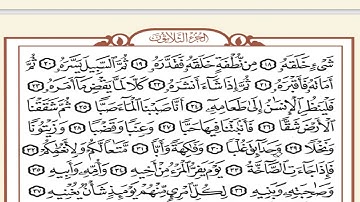 الجزء الثلاثون
شَىْءٍ خَلَقَهُۥ ١٨ مِن نُّطْفَةٍ خَلَقَهُۥ فَقَدَّرَهُۥ ١٩ ثُمَّ ٱلسَّبِيلَ يَسَّرَهُۥ ٢٠ ثُمَّ
أَمَاتَهُۥ فَأَقْبَرَهُۥ ٢١ ثُمَّ إِذَا شَآءَ أَنشَرَهُۥ ٢٢ كَلَّا لَمَّا يَقْضِ مَآ أَمَرَهُۥ ٢٣
فَلْيَنظُرِ ٱلْإِنسَٰنُ إِلَىٰ طَعَامِهِۦٓ ٢٤ أَنَّا صَبَبْنَا ٱلْمَآءَ صَبًّا ٢٥ ثُمَّ شَقَقْنَا
ٱلْأَرْضَ شَقًّا ٢٦ فَأَنۢبَتْنَا فِيهَا حَبًّا ٢٧ وَعِنَبًا وَقَضْبًا ٢٨ وَزَيْتُونًا
وَنَخْلًا ٢٩ وَحَدَآئِقَ غُلْبًا ٣٠ وَفَٰكِهَةً وَأَبًّا ٣١ مَّتَٰعًا لَّكُمْ وَلِأَنْعَٰمِكُمْ ٣٢
فَإِذَا جَآءَتِ ٱلصَّآخَّةُ ٣٣ يَوْمَ يَفِرُّ ٱلْمَرْءُ مِنْ أَخِيهِ ٣٤ وَأُمِّهِۦ وَأَبِيهِ ٣٥
وَصَٰحِبَتِهِۦ وَبَنِيهِ ٣٦ لِكُلِّ ٱمْرِئٍ مِّنْهُمْ يَوْمَئِذٍ شَأْنٌ يُغْنِيهِ ٣٧